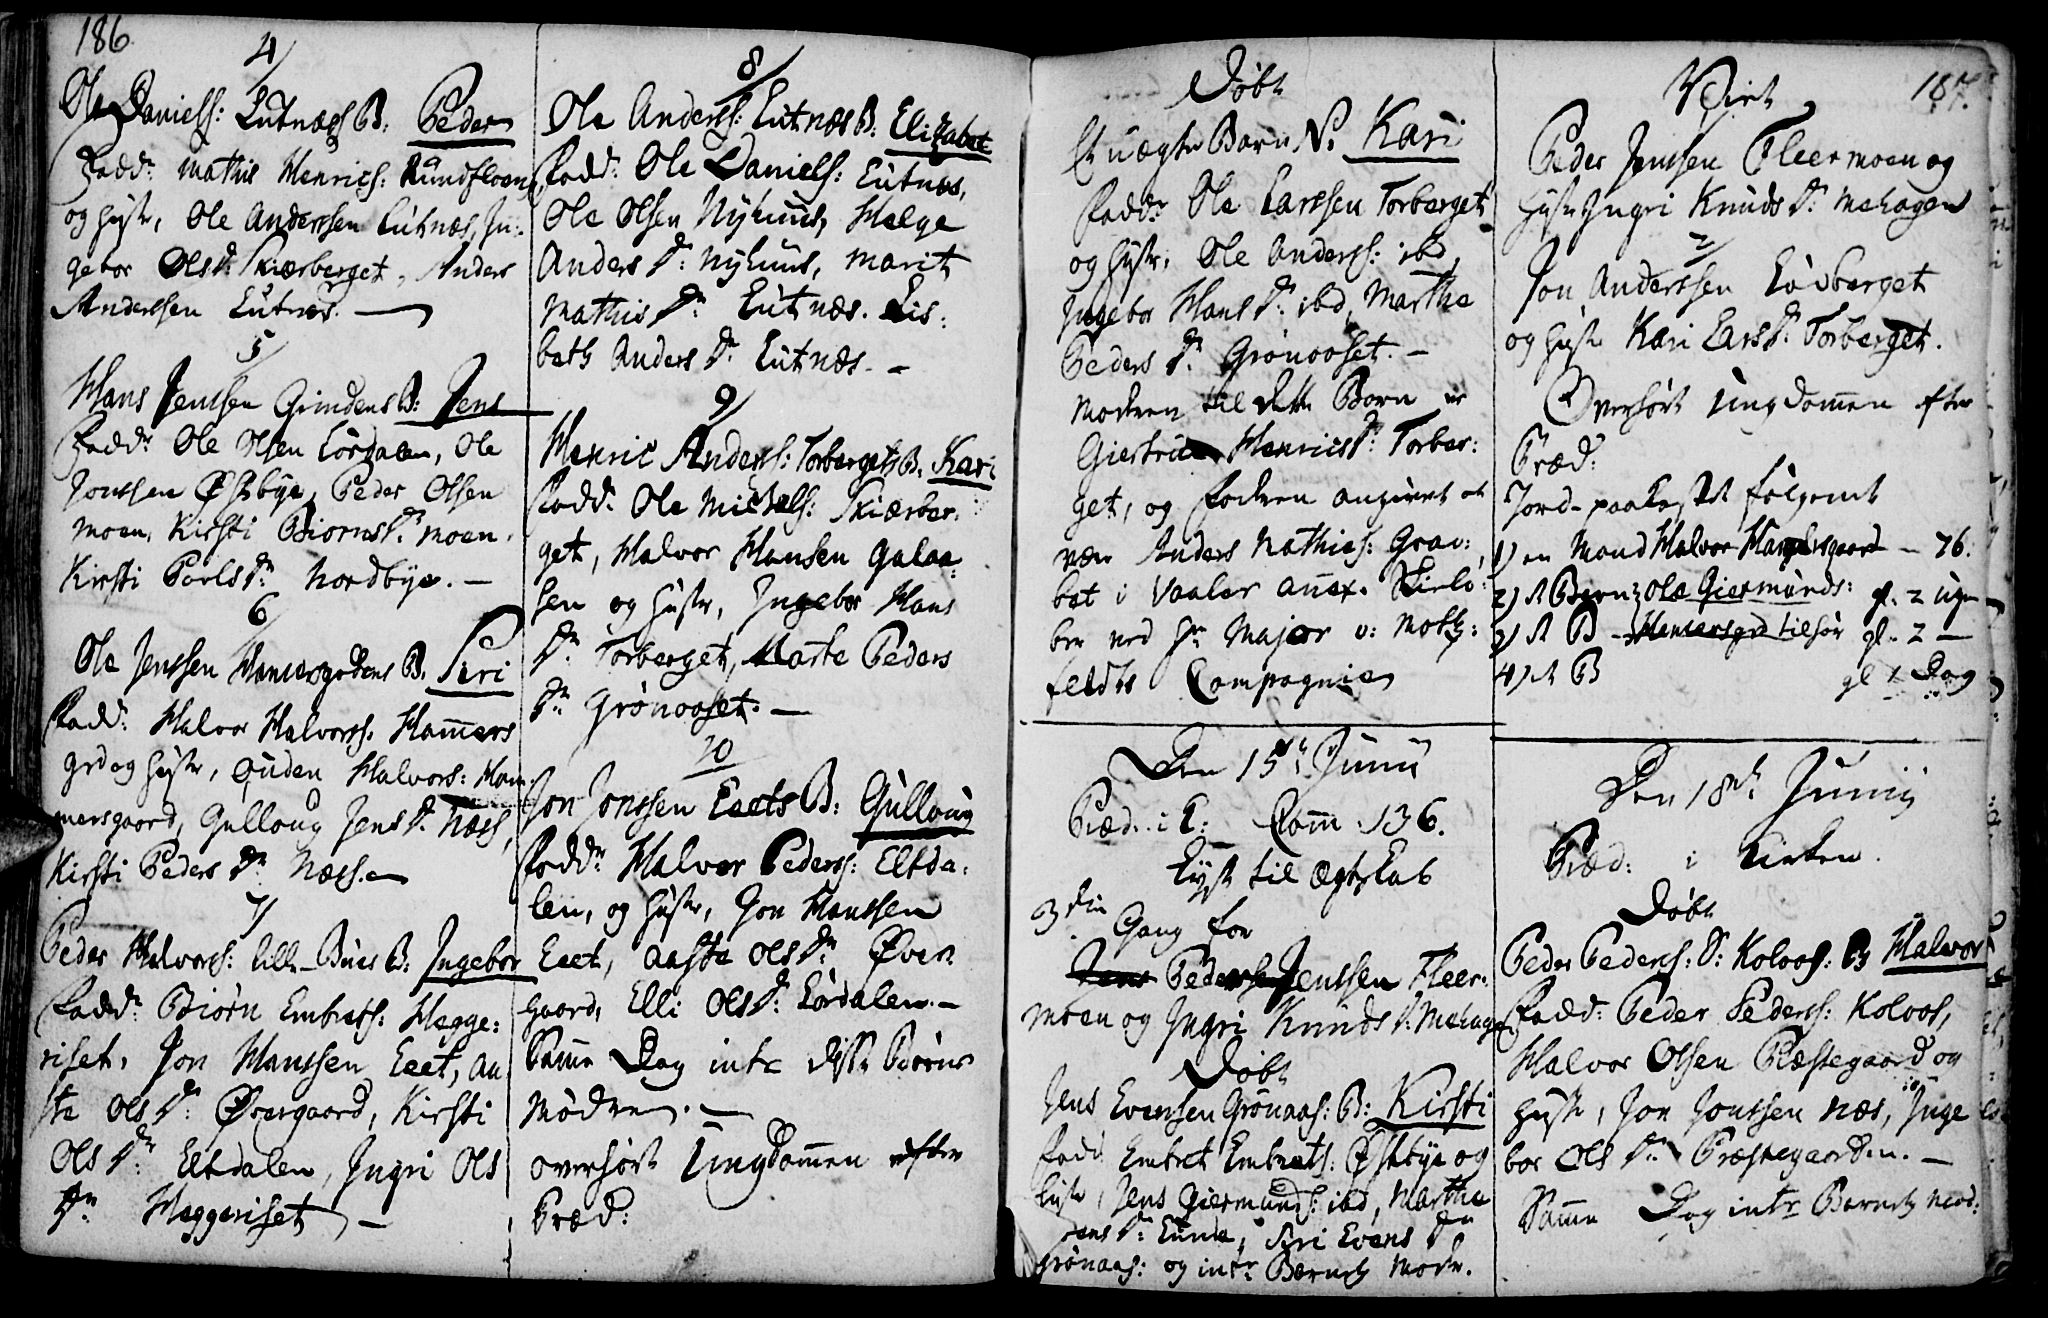 186
4/
Ole Daniels: Lutnæs B: Peder
Fadd: Mathis Henrics: Rundfloen
og hustr, Ole Anderssen Lutnæs, In-
gebor Ols Dr: Skiærberget, Anders
Anderssen Lutnæs. —
5/
Hans Jenssen Grindens B: Jens
Fadd: Ole Olsen Lördalen, Ole
Jonssen Østbye, Peder Olsen
Moen, Kirsti Biorns Dr: Moen,
Kirsti Povls Dr: Nordbye. —
6/
Ole Jenssen B. Siri
Fadd: Halvor Halvorss. Hamers
grd og hustr, Halvors: Ham-
mersgaard, Gulloug Jens Dr. Næss,
Kirsti Peders Dr Næss. —
7/
Peder Halvorss: Lille-Bues B: Ingebor
Fadd: Biörn Embrets: Hegge:
riset, Jon Hanssen Eeet, Aa
ste Ols Dr: Øvergaard, Kirsti
Ols Dr: Eltdalen, Ingri Ols
Dr Heggeriset —
8/
Ole Anderss: Lutnæs B: Elizabet
Fadd: Ole Daniels: Lutnæs,
Ole Olsen Nyhuus, Helge
Anders Dr: Nyhuus, Marit
Mathis Dr Lutnæs. Lis-
beth Anders Dr Lutnæs. —
9/
Henric Anderss: Torbergets B. Kari
Fadd: Ole Michels: Skiærber-
get, Halvor Hansen Galaa-
sen og hustr, Ingebor Hans
Dr Torberget, Marte Peders
Dr Grönoset. —
10
Jon Jonssen Eeets B: Gulloug
Fadd: Halvor Pederss: Eltda-
len, og hustr, Jon Hanssen
Eeet, Aaste Ols Dr Øver-
gaard, Elli Ols Dr: Lördalen. —
Samme Dag intr disse Börns
Mödre. —
overhört Ungdommen efter
Præd:
Döbt
Et uægte Barn N. Kari
Fadd: Ole Larssen Torberget
og hustr, Ole Anderss: ibd,
Ingebor Hans Dr: ibd, Marthe
Peders Dr Grönooset. —
Modren til dette Barn er
Henrics Dr: Torber:
get, og Fadren angivet at
være Anders Mathies: Grav:
bet i Vaaler annex.
ber ved Hr Major v: Motz:
feldts Compagnie
Den 15de Junii
Præd: i T: Comm. 136.
Lyst til Ægteskab
3die Gang for
Peder Jenssen Fleer-
moen og Ingri Knuds Dr: Mehagen
Döbt
Jens Evensen Grönaas: B: Kirsti
Fadd: Embret Embrets: Østbye og
hustr, Jens Giermunds: ibd, Marthe
Jens Dr: Lunde, Siri Evens Dr
Grönaas: og intr Barnets Modr.
187.
Viet
Peder Jenssen Fleermoen og
hustr Ingri Knuds Dr: Mehagen
2/
Jon Anderssen Lövberget
og hustr Kari Lars Dr. Torberget.
Overhört Ungdommen efter
Præd:
Jord-paakastet følgende
1) en Mand Halvor — 76.
2) Et Barn Ole Giermunds: gl. 2 Uger
3) Et B — Hamersgrd tilhør gl. 2 —
4) Et B gl 1 Dag
Den 18de Junij
Præd: i Kirken.
Döbt
Peder Pederss: S: Koloos: B Halvor
Fadd: Peder Pederss: Koloos,
Halvor Olsen Præstegaard og
hustr, Jon Jonssen Næs, Inge
bor Ols Dr Præstegaarden. —
Samme Dag intr Barnets Mod: